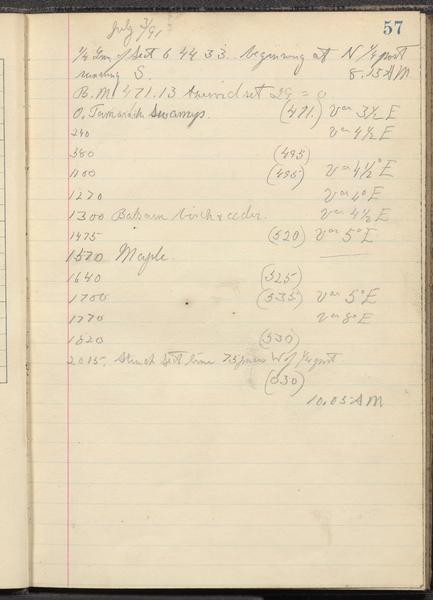 57
July 3/91
1/4 Line of Sect 6 44 33. beginning at N 1/4 post
running S. 8.15 A.M.
B.M 471.13 = 0
0. Tamarack swamps. (471.) Var 3½ E
240 Var 4½ E
380 (495)
1100 (495) Var 4½° E
1270 Var 4° E
1300 Balsam birch & ceder. Var 4½ E
1475 (520) Var 5° E
1570 Maple.
1640 (525)
1700 (535) Var 5° E
1770 Var 8° E
1820 (530)
2015. Struck Sect line 75 paces W of 1/4 post
(530)
10.05 A M